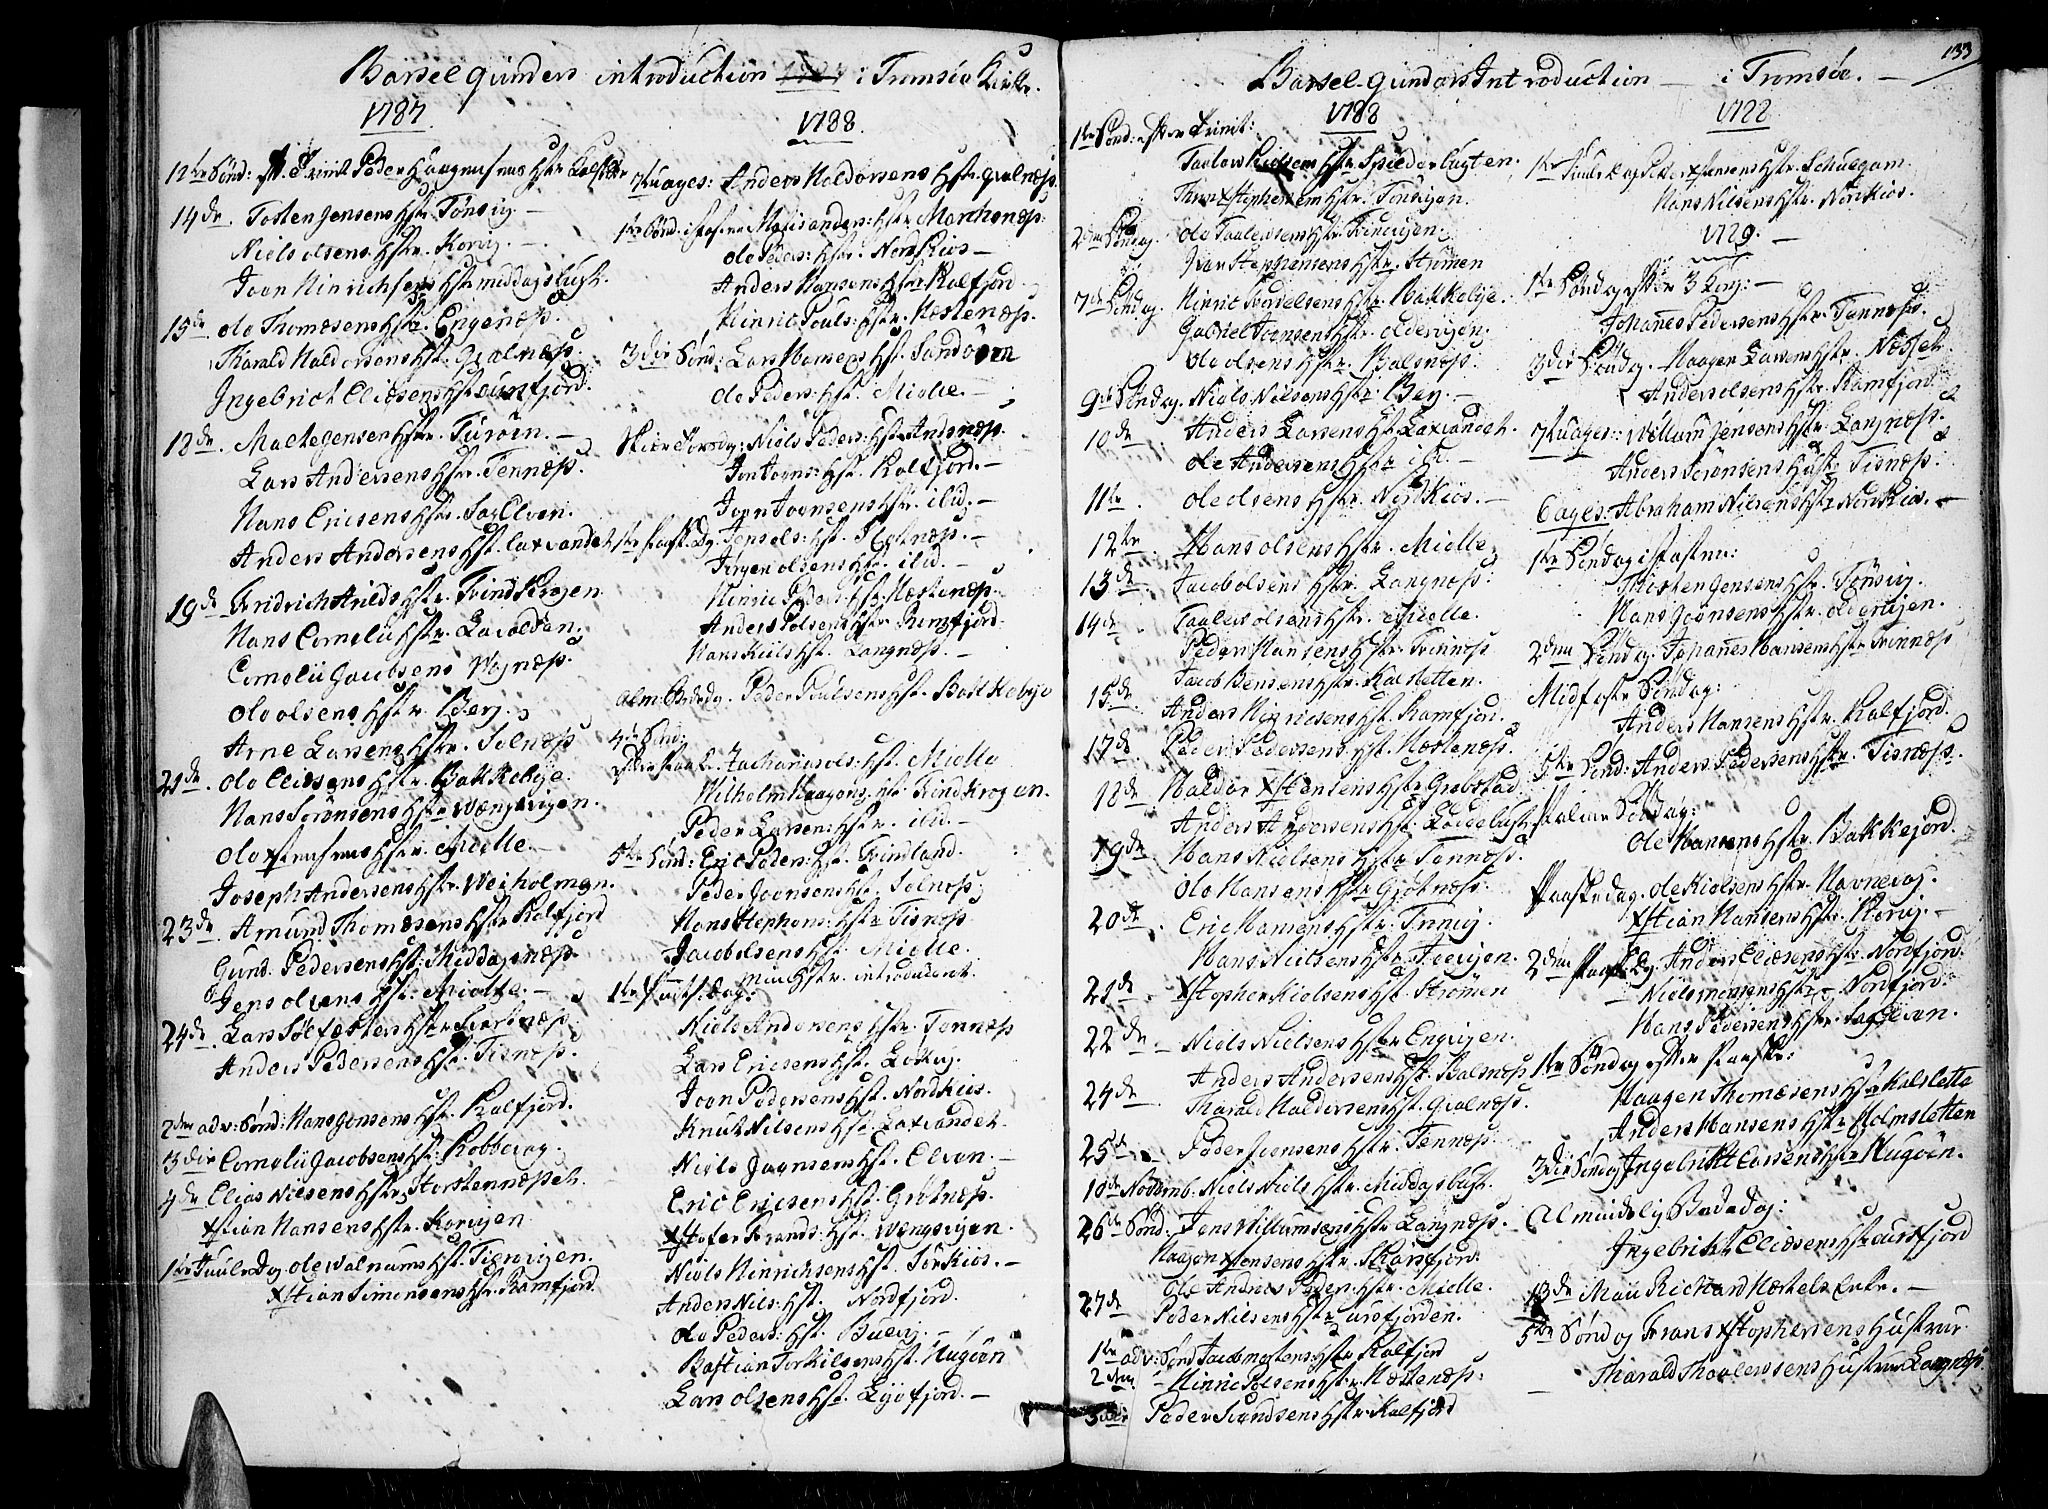 Barselqvinders introduction i Tromsøe Kirke.
1787.
12te Sønd: Trinit Peder Haagensens Hstr
14de. Tosten Jensens Hstr. Tønsvig. —
Niels olsens Hstr. Korvig. —
Joen Hinrichsens Hstr middagsbugt.
15de ole Thomæsens Hstr. Engenæss.
Tharald Haldorsens Hst. Qvalnæss.
Ingebrict Eliæsens Hst aursfjord.
18de. Jensens Hstr. Turøen. —
Lars Andersens Hstr. Tennæss.
Hans Ericsens Hstr. Lax Elven.
Anders Andersens Hst. Laxvandet
19de Fridrich Arilds Hstr. Find Krogen
Hans Cornelii Hstr. Lavolden.
Cornelii Jacobsens Vognæss.
ole olsens Hstr. Berg.
Arne Larsens Hstr. Solnæss
21de. ole Eliæsens Hstr. Bakkebye.
Hans Sørensens Hstr Wængsvigen.
ole Xstensens Hstr. Mielle. —
Joseph Andersens Hstr. Weiholmen.
23de. Amund Thomæsens Hstr Kalfjord
Gund. Pedersens Hst. Middagsnæss.
Jens olsens Hst. Mielle. —
24de. Lars
Anders Pedersens Hst. Tisnæss.
2den adv: Sønd: Hans Jensens Hst. Kalfjord.
3die Cornelii Jacobsens Hst. Kobbevog.
4de Elias Nilsens Hstr Storstennæsset.
Xstian Hansens Hstr. Korvigen
1te Juuledag ole Walnums Hst. Tiervigen.
Xstian Simensens Hstr. Ramfjord.
1788.
7tuages: Anders Haldorsens Hstr. Qvalnæss.
1te Sønd. i Faste Matis anders: Hstr Marthenæss:
ole Peders: Hstr. Nordkios —
Anders Hansens Hstr Kalfjord.
Hinric Pouls: Hstr. Hestenæss.
3die Sønd: Lars Hansens Hst. Sandøren
ole Peders: Hst. Mielle. —
Skiær Torsdag: Niels Peders: Hstr Andsnæss.
Jon Joens: Hst. Kalfjord. —
Joen Joensens Hstr. ibid. —
1te Paaske Dg: Jens ols: Hst. —
Jørgen olsens Hst. ibid. —
Hinric Peders: Hst. Hestenæss.
Anders Polsens Hstr Ramfjord.
Hans Kiils Hst. Langnæss. —
alm: Bededag. Peder Poulsens Hst. Bakkebye
4de Sønd:
efter Paask. Zacharias ols: Hst. Mielle
Wilholm Haagens: Hst. Find Krogen.
Peder Larsen: Hstr. ibid. —
5te Sønd: Eric Peders: Hst. Findland.
Peder Joensens Hst. Solnæss.
Hans Stephens: Hstr Tisnæss
Jacob olsens Hst. Mielle.
1te Pintse Dag: min Hstr. introduceret.
Niels Andersens Hstr. Tennæss
Lars Ericsens Hst. Lokvig.
Joen Pedersens Hst. Nordkios.
Knut Nilsens Hst. Laxvandet.
Niels Joensens Hst. Elven. —
Eric Ericsens Hst. Grøtnæss.
Xstofer Frands: Hst. Wængsvigen.
Niels Hinrichsens Hst. Sørkios. —
Anders Niels: Hst. Nordfjord.
ole Peders: Hst. Buevig. —
Bastian Torkilsens Hst. Hugøen
Lars olsens Hst. Lyefjord. —
133
Barsel-qvinders Introduction — i Tromsøe. —
1788
1te Sønd: efter Trinit:
Taalow Hstr. Spilderbugten.
Hstr. Tønsvigen.
2den Søndag. ole Taalevsens Hstr. Finvigen.
Iver Stephensens Hstr. Strømen
7de Søndag. Hinric Hstr. Bakkebye.
Gabriel Joensens Hstr. oldervigen.
ole olsens Hstr. Balsnæss.
9de Søndag. Niels Nilsens Hstr: Berg. —
10de Anders Larsens Hst Laxvandet.
ole Andersens Hstr ib. —
11te. ole olsens Hstr. Nordkios. —
12te Hans olsens Hstr. Mielle.
13de Jacob olsens Hstr. Langnæss:
14de Taalew olsens Hstr. Mielle.
Peder Hansens Hstr. Finnæss
15de. Jacob Bensens Hstr. Kalsletten.
Anders Hinricsens Hst. Ramfjord.
17de Peder Pedersens Hst. Hestenæss.
18de Haldor Xstensens Hstr. Grøbstad
Anders Andersens Hst:
19de Hans Nielsens Hstr Tennæss.
ole Hansens Hstr Grøtnæss.
20de Eric Hansens Hstr. Finvig.
Hans Nielsens Hstr.
21de. Xstopher Kielsens Hst. Strømen
22de. Niels Nielsens Hstr Engvigen.
24de Anders Andersens Hst. Balsnæss
Tharald Haldersens Hst. Qvalnæss.
25de Peder Joensens Hstr. Tennæss.
10de Novemb. Niels Niels Hstr. Middagsbugt.
26de Sønd. Jens Willumsens Hstr Langnæss.
Haagen Xstensens Hstr. Skarsfjord.
ole Andreas Peders: Hstr. Mielle.
27de Peder Nilsens Hstr aursfjorden.
1te adv: Sønd Jacob mortens: Hstr Kalfjord
2den Hinric Polsens Hstr. Hestenæss:
3die Peder Sivendsens Hstr Kalfjord
1788
1te Juuledag Peder Xstensens Hstr. Schulgam.
Hans Nilsens Hstr. Nordkios.
1789. —
1te Søndag efter 3 Kong: —
Johanes Pedersens Hstr. Tennæss.
3die Søndag. Haagen Larsens Hstr. Næsset
Anders olsens Hstr. Ramfjord.
7tuages: Willum Jensens Hstr. Langnæss.
Anders Sørensens Hstr. Tisnæss.
6ages: Abraham Nielsens Hstr Nordkios. —
1te Søndag i Fasten:
Thosten Jensens Hstr. Tønsvig.
Hans Joensens Hstr. oldervigen.
2den Søndag. Johanes Hansens Hstr Finnæss
Midfaste Søndag:
Anders Hansens Hstr. Kalfjord.
5te Sønd: Anders Pedersens Hstr. Tisnæss.
Palme Søndag:
ole Hansens Hstr. Bakkejord.
Paaskedag. ole Kielsens Hstr. Havnevog.
Xstian Hansens Hstr. Korvig. —
2den Paaske Dg. Anders Eliæsens Hstr. Nordfjord.
Niels monsens Hstr. Nordfjord.
Hans Pedersens Hstr. Lax Elven.
1te Søndag efter Paaske:
Haagen Thomæsens Hstr Kalslette
Anders Hansens Hstr Holmsletten
3die Søndag Ingebrikt Larsens Hstr Hugøen.
Almindelig Bededag:
Ingebrikt Eliæsens Hstr aursfjord
13de Maii Richard Enke. —
5te Søndag Frans Xstophersens Hustrue.
— Tharald Thoolevsens Hustrue Langnæss.